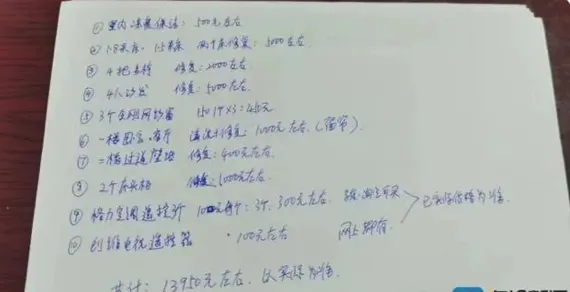 ① 室内深度保洁: 500元左右
② 1.8米床、1.5米床 两个床修复: 5000左右
③ 4把餐椅 修复: 2000左右
④ 4人沙发 修复: 5000左右
⑤ 3个金刚网纱窗 150个×3=450元
⑥ 一楼 客厅 清洗 修复: 1000元左右。(窗帘)
⑦ 二楼过道壁 修复: 400元左右
⑧ 2个床头柜 修复: 1000元左右.
⑨ 格力空调遥控器 100元每个: 3个, 300元左右 淘宝 已实际价格为准.
⑩ 创维电视遥控器 100元左右 网上都有.
共计: 13950元左右. 以实际为准.